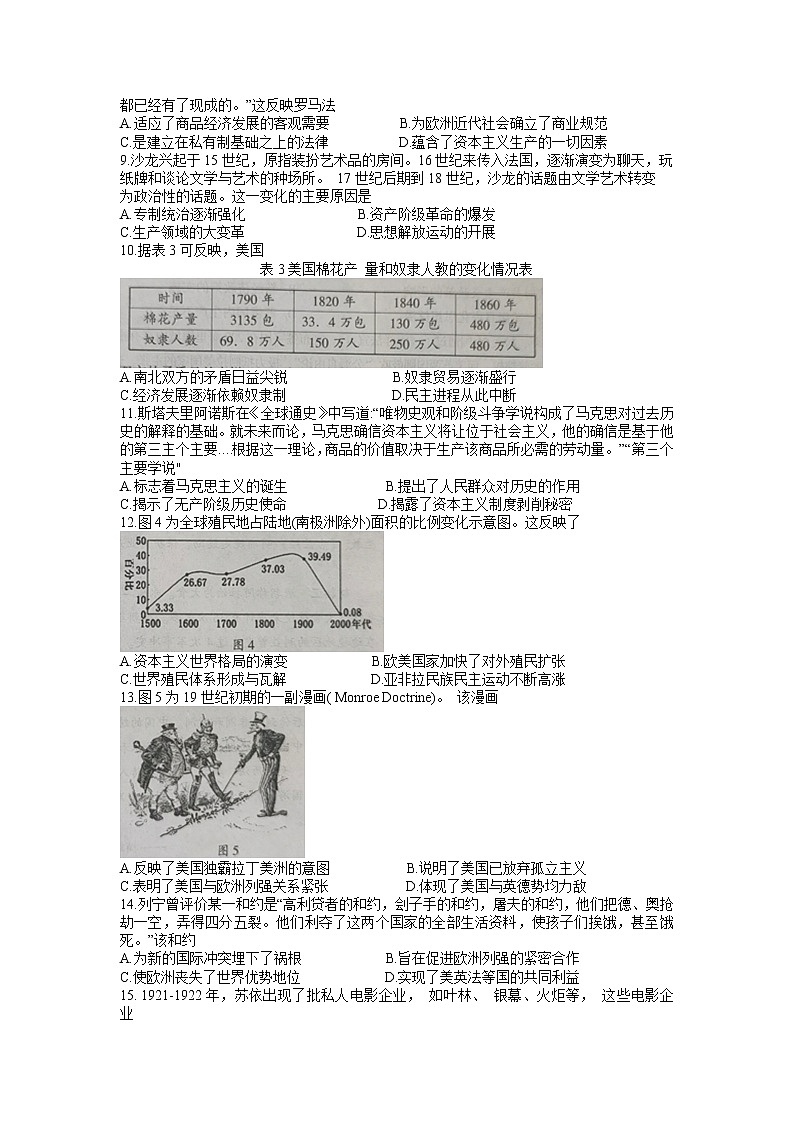 都已经有了现成的。”这反映罗马法
A.适应了商品经济发展的客观需要 B.为欧洲近代社会确立了商业规范
C.是建立在私有制基础之上的法律 D.蕴含了资本主义生产的一切因素
9.沙龙兴起于15世纪，原指装扮艺术品的房间。16世纪来传入法国，逐渐演变为聊天，玩
纸牌和谈论文学与艺术的种场所。 17世纪后期到18世纪，沙龙的话题由文学艺术转变
为政治性的话题。这一变化的主要原因是
A.专制统治逐渐强化 B.资产阶级革命的爆发
C.生产领域的大变革 D.思想解放运动的开展
10.据表3可反映，美国
表3美国棉花产 量和奴隶人教的变化情况表
时间 1790年 1820年 1840年 1860年
棉花产量 3135包 33.4万包 130万包 480万包
奴隶人数 69.8万人 150万人 250万人 480万人
A.南北双方的矛盾日益尖锐 B.奴隶贸易逐渐盛行
C.经济发展逐渐依赖奴隶制 D.民主进程从此中断
11.斯塔夫里阿诺斯在《全球通史》中写道:“唯物史观和阶级斗争学说构成了马克思对过去历
史的解释的基础。就未来而论，马克思确信资本主义将让位于社会主义，他的确信是基于他
的第三主个主要…根据这一理论，商品的价值取决于生产该商品所必需的劳动量。”“第三个
主要学说"
A.标志着马克思主义的诞生 B.提出了人民群众对历史的作用
C.揭示了无产阶级历史使命 D.揭露了资本主义制度剥削秘密
12.图4为全球殖民地占陆地(南极洲除外)面积的比例变化示意图。这反映了
百分比
50
40
30
20
10
0
3.33 26.67 27.78 37.03 39.49 0.08
1500 1600 1700 1800 1900 2000年代
图4
A.资本主义世界格局的演变 B.欧美国家加快了对外殖民扩张
C.世界殖民体系形成与瓦解 D.亚非拉民族民主运动不断高涨
13.图5为19世纪初期的一副漫画( Monroe Doctrine)。 该漫画
图5
A.反映了美国独霸拉丁美洲的意图 B.说明了美国已放弃孤立主义
C.表明了美国与欧洲列强关系紧张 D.体现了美国与英德势均力敌
14.列宁曾评价某一和约是“高利贷者的和约，刽子手的和约，屠夫的和约，他们把德、奥抢
劫一空，弄得四分五裂。他们利夺了这两个国家的全部生活资料，使孩子们挨饿，甚至饿
死。”该和约
A.为新的国际冲突埋下了祸根 B.旨在促进欧洲列强的紧密合作
C.使欧洲丧失了世界优势地位 D.实现了美英法等国的共同利益
15. 1921-1922年，苏依出现了批私人电影企业， 如叶林、 银幕、火炬等， 这些电影企
业